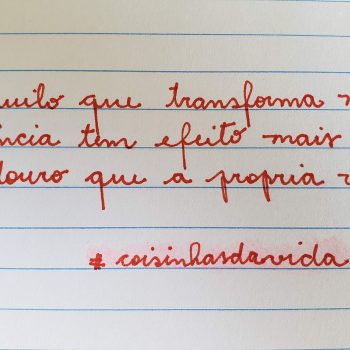 uilo que transforma n
ência tem efeito mais
douro que a propria v
#coisinhasdavida